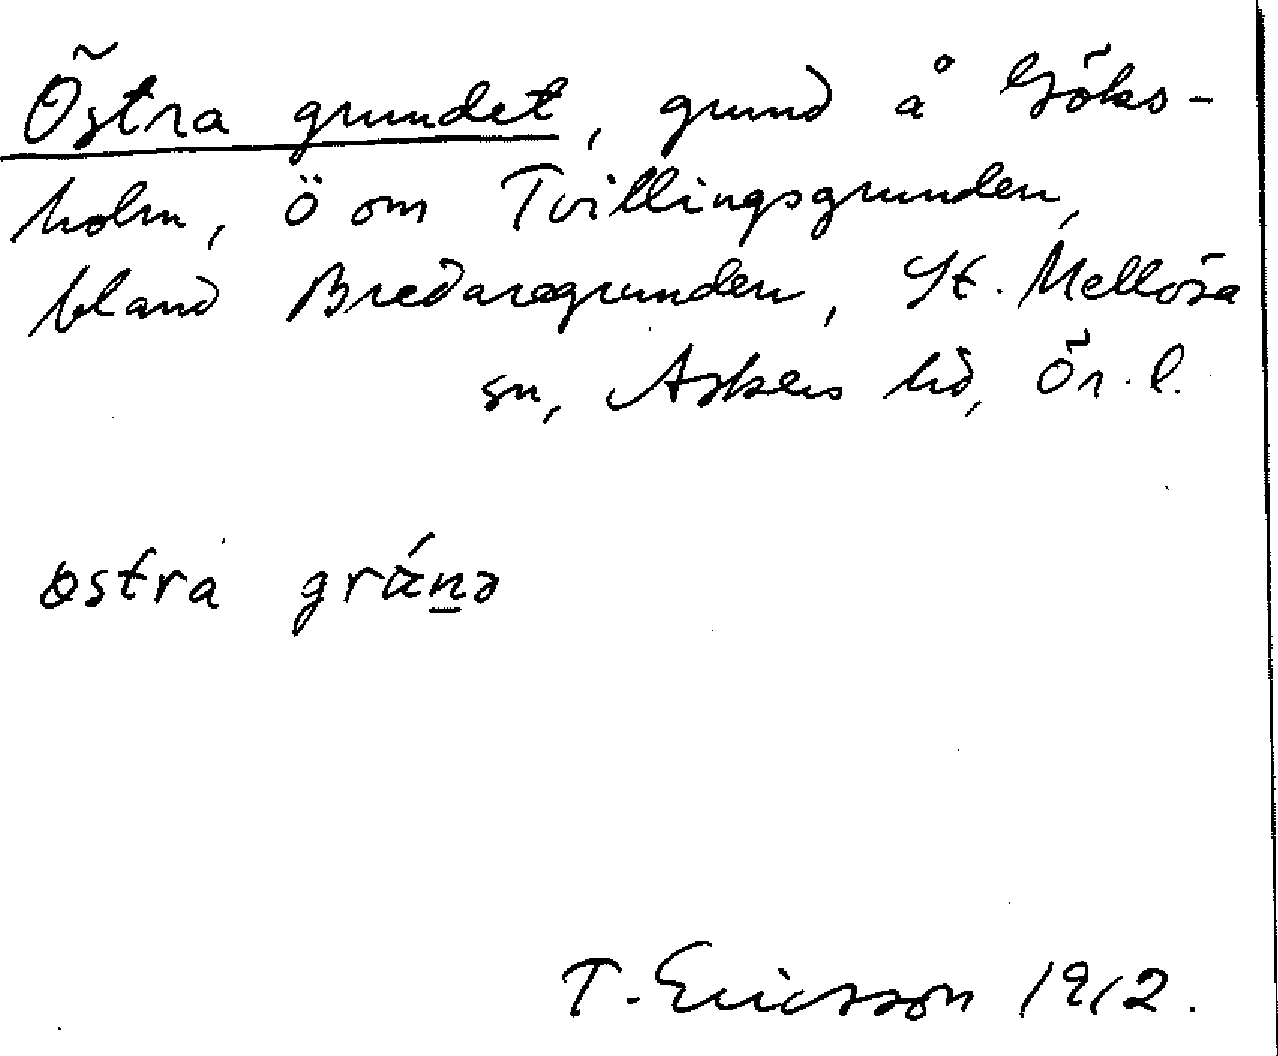 Östra grundet, grund å Göks-
holm, ö om Tvillingsgrunden,
bland Bredaregrunden, St. Mellösa
sn, Askers hd, Ör. l.
østra gránə
T. Ericsson 1912.